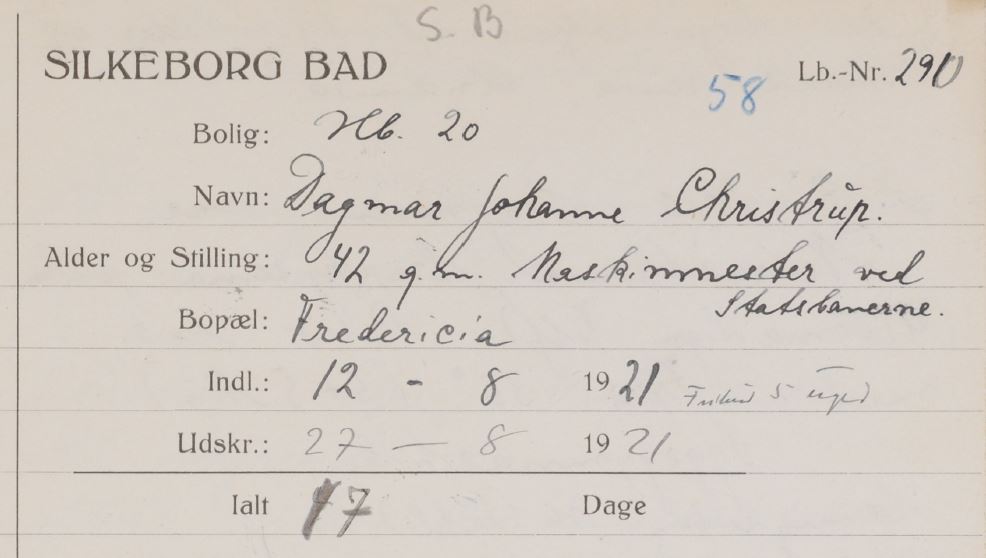 S. B
SILKEBORG BAD
58
Lb.-Nr. 290
Bolig: Hb. 20
Navn: Dagmar Johanne Christrup.
Alder og Stilling: 42 g.m. Maskinmester ved
Statsbanerne.
Bopæl: Fredericia
Indl.: 12 - 8 1921 5
Udskr.: 27 — 8 1921
Ialt 17 Dage